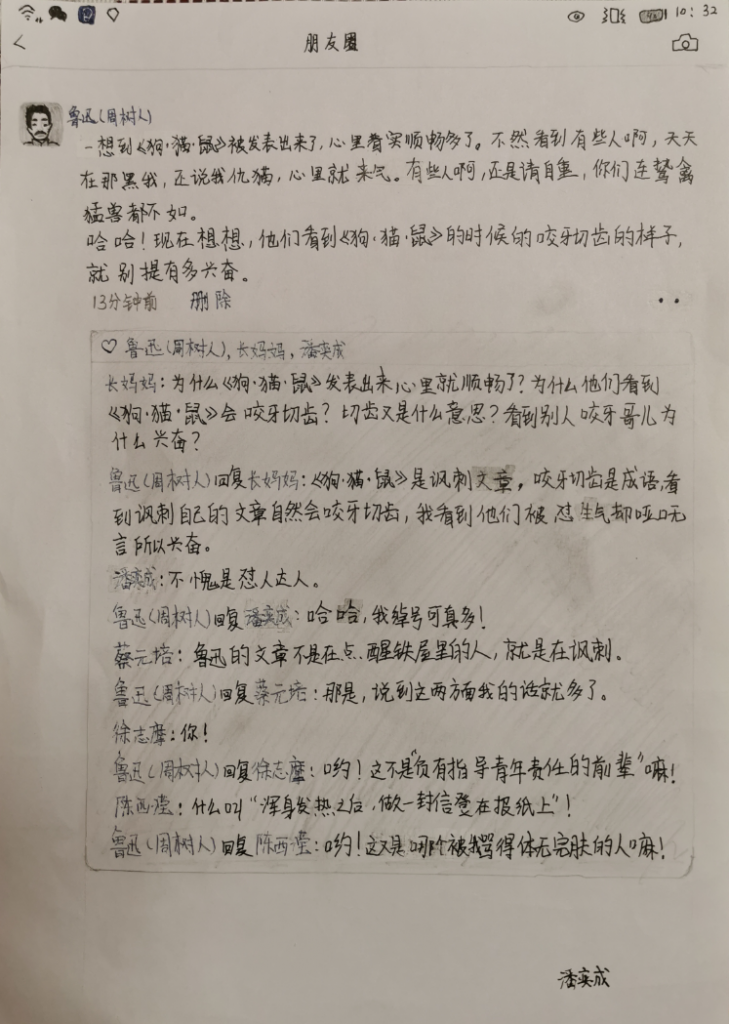 10:32
朋友圈
鲁迅(周树人)
一想到《狗·猫·鼠》被发表出来了,心里着实顺畅多了。不然看到有些人啊,天天
在那黑我,还说我仇猫,心里就来气。有些人啊,还是请自重,你们连鸷禽
猛兽都不如。
哈哈!现在想想,他们看到《狗·猫·鼠》的时候的咬牙切齿的样子,
就别提有多兴奋。
13分钟前 删除
鲁迅(周树人),长妈妈,潘奕成
长妈妈:为什么《狗·猫·鼠》发表出来心里就顺畅了?为什么他们看到
《狗·猫·鼠》会咬牙切齿?切齿又是什么意思?看到别人咬牙哥儿为
什么兴奋?
鲁迅(周树人)回复长妈妈:《狗·猫·鼠》是讽刺文章,咬牙切齿是成语,看
到讽刺自己的文章自然会咬牙切齿,我看到他们被怼生气却哑口无
言所以兴奋。
潘奕成:不愧是怼人达人。
鲁迅(周树人)回复潘奕成:哈哈,我绰号可真多!
蔡元培:鲁迅的文章不是在点醒铁屋里的人,就是在讽刺。
鲁迅(周树人)回复蔡元培:那是,说到这两方面我的话就多了。
徐志摩:你!
鲁迅(周树人)回复徐志摩:哟!这不是“负有指导青年责任的前辈”嘛!
陈西滢:什么叫“浑身发热之后,做一封信登在报纸上”!
鲁迅(周树人)回复陈西滢:哟!这又是哪个被我骂得体无完肤的人嘛!
潘奕成